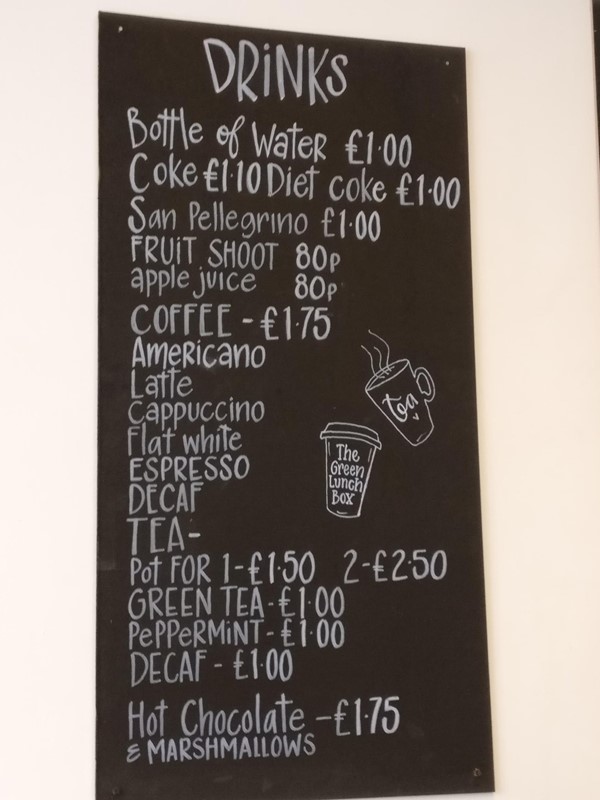 DRiNKS
Bottle of Water £1·00
Coke £1·10 Diet coke £1·00
San Pellegrino £1·00
FRUiT SHOOT 80p
apple juice 80p
COFFEE - £1·75
AmeRicano
Latte
Cappuccino
Flat white
ESPRESSO
DECAF
TEA-
Pot FOR 1-£1·50 2-£2·50
GREEN TEA-£1·00
PePPeRMiNT-£1·00
DECAF - £1·00
Hot Chocolate -£1·75
& MARSHMALLOWS
tea
The
Green
Lunch
Box